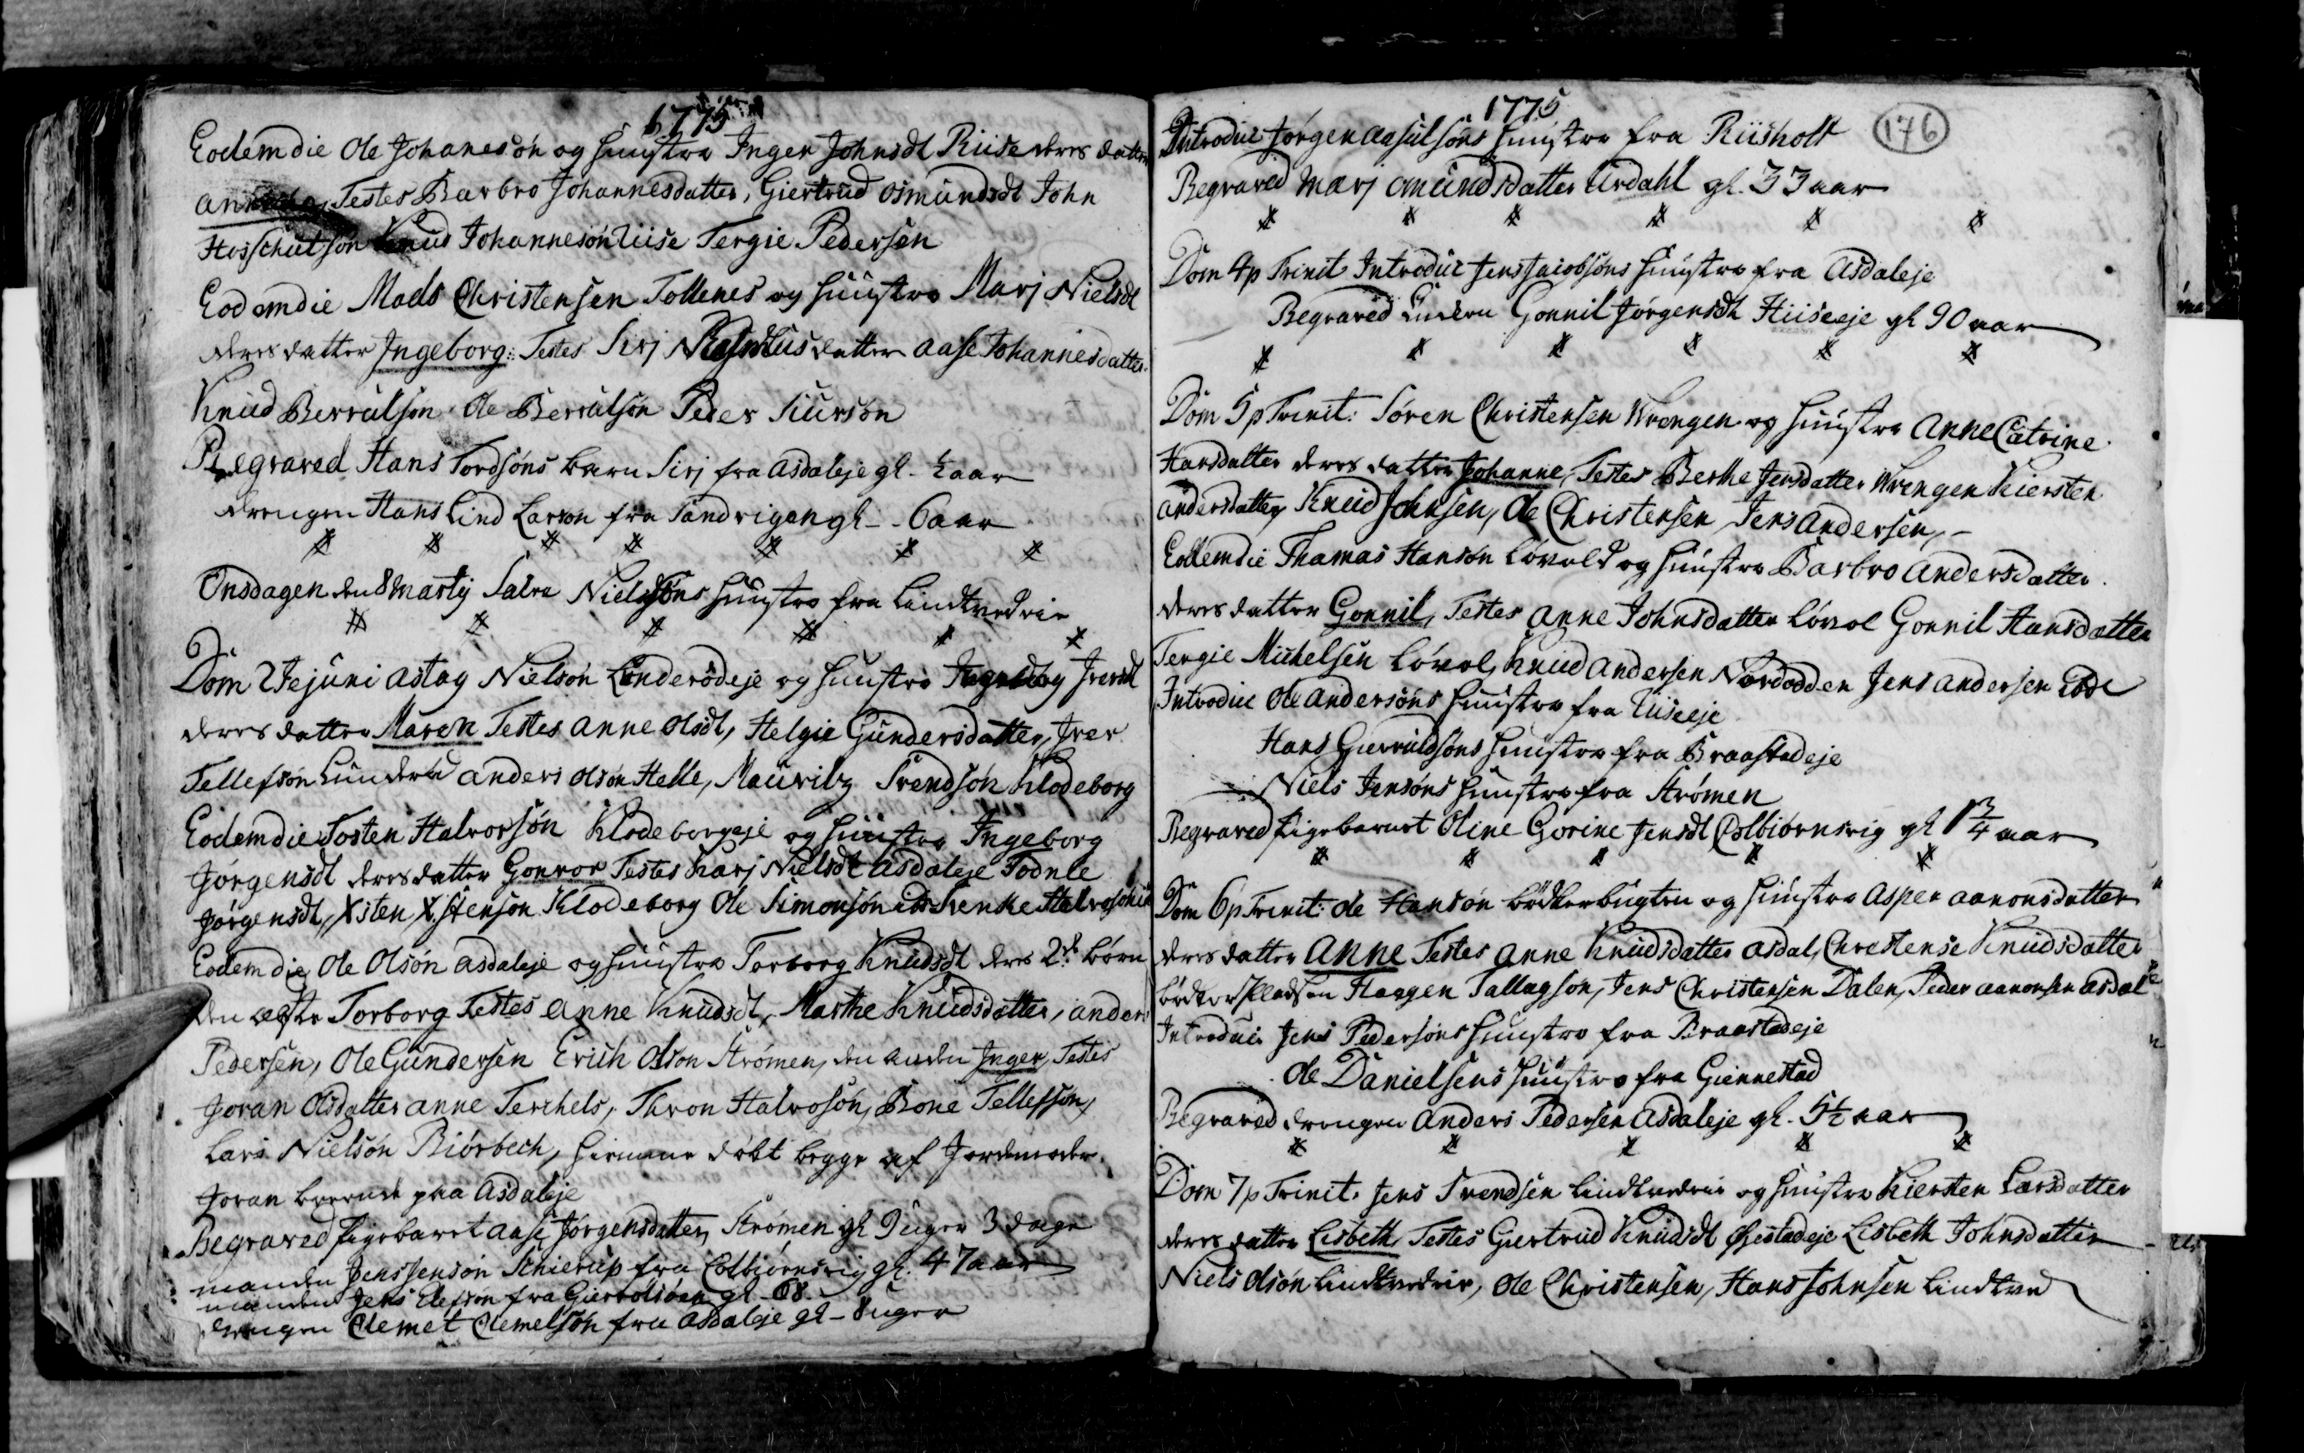 1775
Eodem die Ole Johanesøn og hustro Inger Johnsdt Riise deres datter
Testes Barbro Johannesdatter, Giertrud Osmundsdt John
Knud Johannesøn Riise Tergie Pedersen
Eodem die Mads Christensen Tollenes og hustro Marj Nielsdt
deres datter Ingeborg: Testes Sirj datter Aase Johannesdatter
Knud Berrulsøn Ole Berrulsøn Peder Siursøn
Begraved Hans Tordsøns barn Sirj fra Asdaleje gl. ½ aar
drengen Hans Lind Larsøn fra Sandvigen gl - 6 aar
Onsdagen den 8 Martij Salve Nielsøns hustro fra Lindtvedvie
Dom 2 Jejuni Aslag Nielsøn Lunderødeje og hustro Iversdt
deres datter Maren Testes Anne Olsdt, Helgie Gundersdatter, Iver
Tellefsøn Anders Olsøn Helle, Mauritz Svendsøn Klodeborg
Eodem die Tosten Halvorsøn Klodeborgeje og hustro Ingeborg
Jørgensdt deres datter Gonvor Testes Karj Nielsdt Asdaleje Todnle
Jørgensdt, Xsten Xstensøn Klodeborg Ole Simonsøn
Eodem die Ole Olsøn Asdaleje og hustro Torborg Knudsdt deres 2de børn
den ægste Torborg Testes Anne Knudsdt, Marthe Knudsdatter, Anders
Pedersen, Ole Gundersen Erich Olsøn Strømen, den anden Inger, Testes
Joran Olsdatter Anne Terchels, Thron Halvosøn, Bone Tellefsøn,
Lars Nielsøn Biørbech, hiemme døbt begge af Jordemoder
Joran boende paa Asdaleje
Begraved pigebarnet Aase Jørgensdatter Strømen gl 9 uger 3 dage
manden Jens Jensøn Schierup fra Colbiørnsvig gl. 47 aar
manden Jens Elefsøn fra gl - 68
drengen Clemet Clemetsøn fra Asdaleje gl - 8 uger
1775
176
Introduc Jørgen Aasulsøns hustro fra Riisholt
Begraved Marj Omundsdatter Ardahl gl. 33 aar
Dom 4 p Trinit Introduc Jens Jacobsøns hustro fra Asdaleje
Begraved Enken Gonnil Jørgensdt Hiiseeje gl 90 aar
Dom 5 p Trinit: Søren Christensen Wrengen og hustro Anne Catrine
Hansdatter deres datter Johanne, Testes Berthe Jensdatter Wrengen Kiersten
Andersdatter, Knud Johnsen, Ole Christensen Jens Andersen, -
Eodem die Thamas Hansøn Løvold og hustro Barbro Andersdatter
deres datter Gonnil, Testes Anne Johnsdatter Løvol Gonnil Hansdatter
Tergie Michelsen Løvol, Knud Andersen Nordodden Jens Andersen
Introduc Ole Andersøns hustro fra Riiseeje
Hans hustro fra Braastadeje
Niels Jensøns hustro fra Strømen
Begraved pigebarnet Oline Gorine Jensdt Colbiørnsvig gl 1¾ aar
Dom 6 p Trinit: Ole Hansøn Bødkerbugten og hustro Asper Aanonsdatter
deres datter Anne Testes Anne Knudsdatter Asdal, Christense Knudsdatter
Haagen Tallagsøn, Jens Christensen Dalen, Peder Aanonsen Asdal
Introduc Jens Pedersøns hustro fra Braastadeje
Ole Danielsens hustro fra Giennestad
Begraved drengen Anders Pedersen Asdaleje gl. 5½ aar
Dom 7 p Trinit. Jens Svendsen Lindtvedvie og hustro Kiersten Larsdatter
deres datter Lisbeth Testes Giertrud Knudsdt Lisbeth Johnsdatter
Niels Olsøn Lindtvedvie, Ole Christensen, Hans Johnsen Lindtved